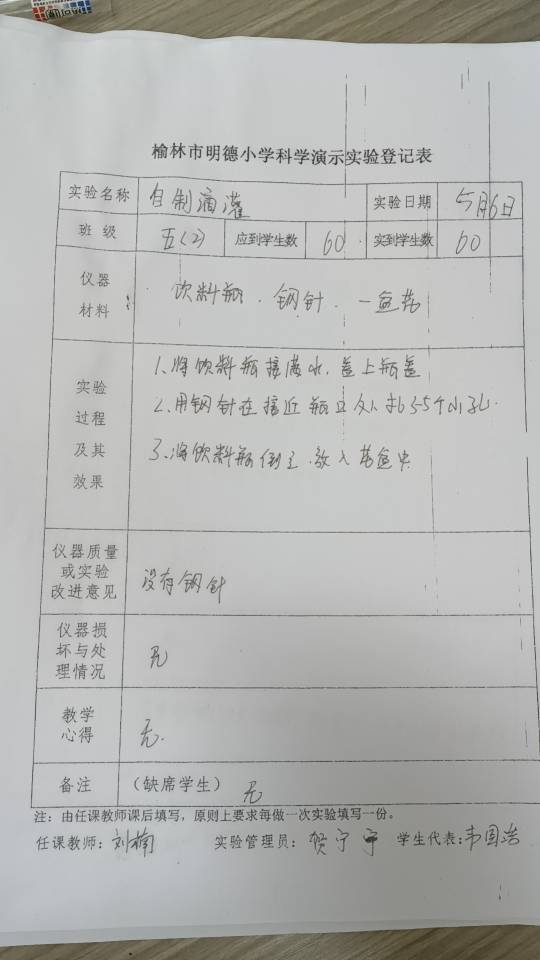 榆林市明德小学科学演示实验登记表
实验名称 自制滴灌 实验日期 5月6日
班级 五(2) 应到学生数 60 实到学生数 60
仪器
材料
饮料瓶、钢针、一盆花
实验
过程
及其
效果
1、将饮料瓶接满水,盖上瓶盖
2、用钢针在接近瓶口处扎 5个小孔.
3、将饮料瓶倒立,放入花盆中
仪器质量
或实验
改进意见
没有钢针
仪器损
坏与处
理情况
无
教学
心得
无.
备注 (缺席学生) 无
注:由任课教师课后填写,原则上要求每做一次实验填写一份。
任课教师:刘楠 实验管理员:贺宁宁 学生代表:韦国浩